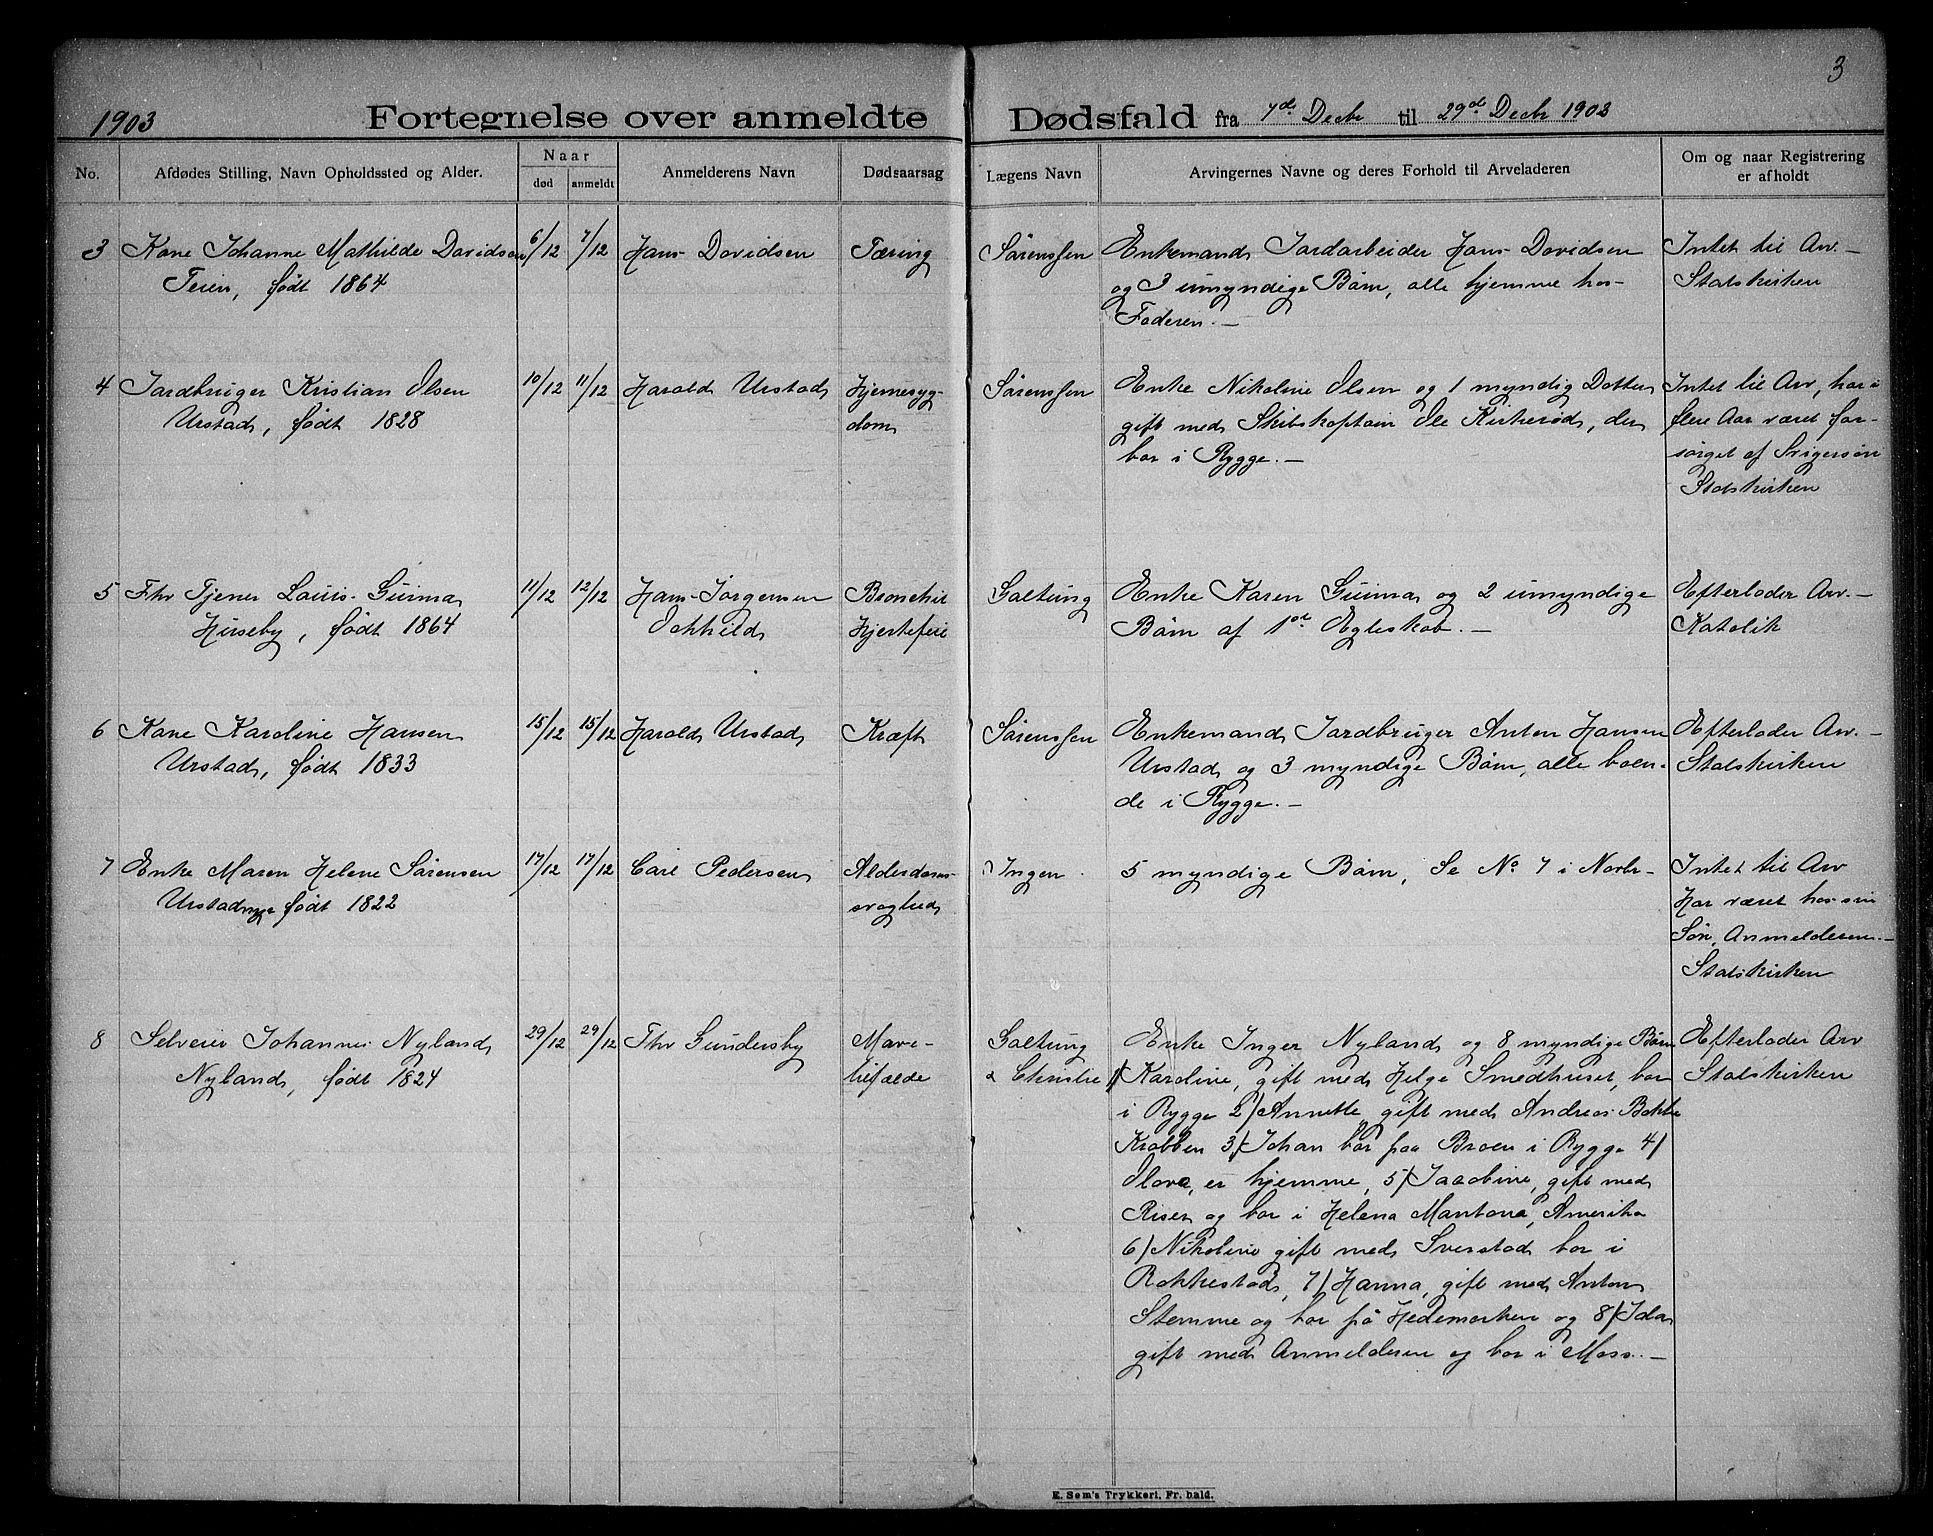 3
1903 Fortegnelse over anmeldte Dødsfald fra 7de Decbr til 29de Decbr 1903
No.
Afdødes Stilling, Navn Opholdssted og Alder.
Naar
død
anmeldt
Anmelderens Navn
Dødsaarsag
Lægens Navn
Arvingernes Navne og deres Forhold til Arveladeren
Om og naar Registrering
er afholdt
3 Kone Johanne Mathilde Davidsen 6/12 7/12 Hans Davidsen Tæring Sørenssen Enkemand Jardarbeider Hans Davidsen Intet til Arv. —
Teien, født 1864 og 3 umyndige Børn, alle hjemme hos Statskirken
Faderen. —
4 Jardbruger Kristian Olsen 10/12 11/12 Harald Urstad Hjernesyg- Sørenssen Enke Nikoline Olsen og 1 myndig Datter Intet til Arv, har i
Urstad, født 1828 dom gift med Skibskaptain Ole Kirkerød, der flere Aar været for-
bor i Rygge. — sørget af Svigersøn
Statskirken
5 Fhv Tjener Louis Guimar 11/12 12/12 Hans Jørgensen Galtung Enke Karen Guimar og 2 umyndige Efterlader Arv. —
født 1864 Børn af 1ste Egteskab. — Katolik
6 Kone Karoline Hansen 15/12 15/12 Harald Urstad Kræft Sørenssen Enkemand Jardbruger Anton Hansen Efterlader Arv. —
Urstad, født 1833 Urstad og 3 myndige Børn, alle boen- Statskirken
de i Rygge. —
7 Enke Maren Helene Sørensen 17/12 17/12 Carl Pedersen Alderdoms- Ingen 5 myndige Børn, Se No 7 i Novbr — Intet til Arv
født 1822 svaghed Har været hos sin
Søn, Anmelderen. —
Statskirken
8 Selveier Johannes Nyland 29/12 29/12 Thv Gundersby Mave- Galtung Enke Inger Nyland og 8 myndige Børn Efterlader Arv
Nyland, født 1824 tilfælde & Christie 1/ Karoline, gift med Helge Smedhuset, bor Statskirken
i Rygge 2/ Annette gift med Andreas Bakke
Krabben 3/ Johan bor paa Broen i Rygge 4/
Olava, er hjemme, 5/ Jacobine, gift med
Riser og bor i Helena Mantona, Amerika
6/ Nikoline gift med Sverstad bor i
Rakkestad, 7/ Hanna, gift med Anton
Stemme og bor på Hedemarken og 8/ Ida
gift med Anmelderen og bor i Moss. —
E. Sem's Trykkeri, Fr. hald.